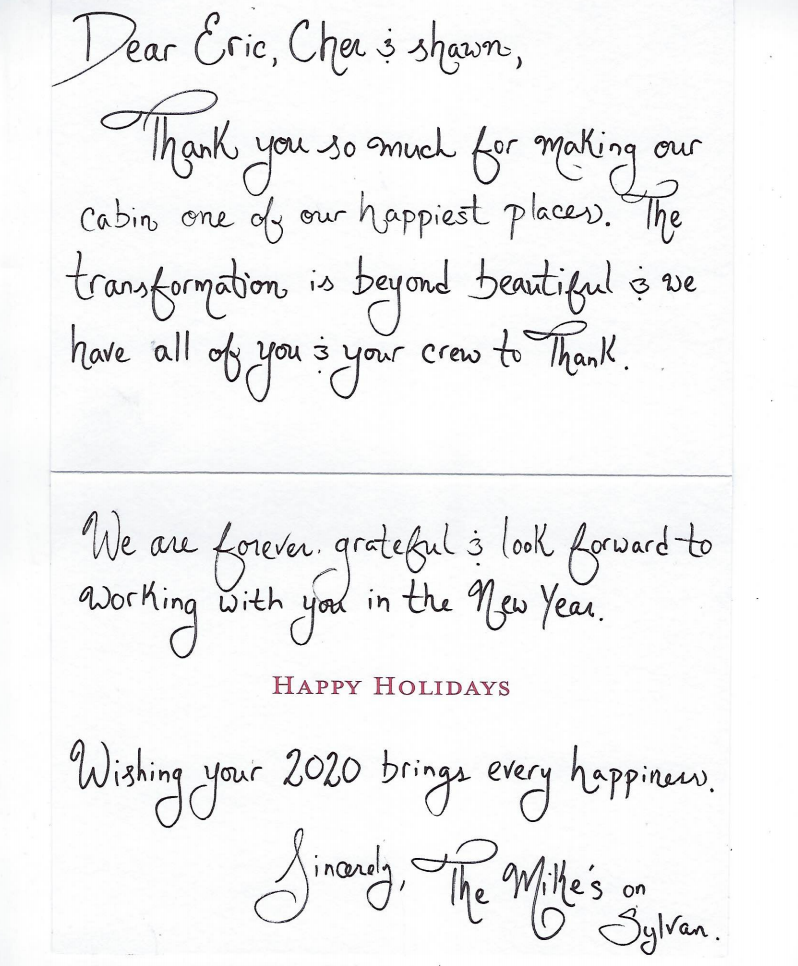 Dear Eric, Cher & shawn,
Thank you so much for making our
cabin one of our happiest places. The
transformation is beyond beautiful & we
have all of you & your crew to Thank.
We are forever grateful & look forward to
working with you in the New Year.
HAPPY HOLIDAYS
Wishing your 2020 brings every happiness.
Sincerely, The Mike's on
Sylvan.